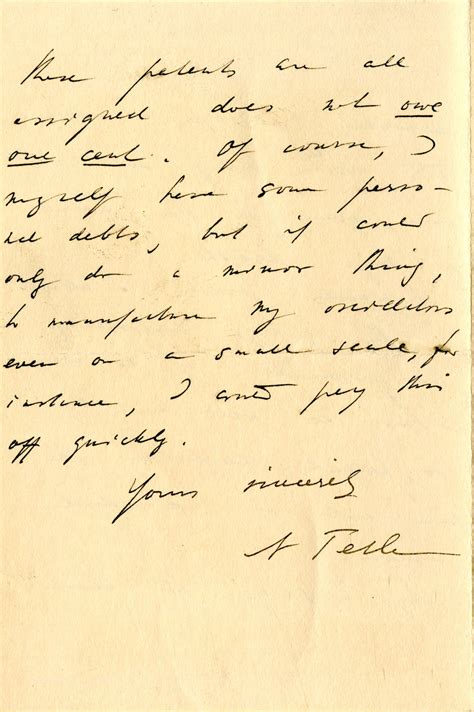 these patents are all
assigned does not owe
one cent. Of course, I
myself have some perso-
nal debts, but if could
only do a minor thing,
to manufacture my oscillators
even on a small scale, for
instance, I could pay this
off quickly.
Yours sincerely
N Tesla